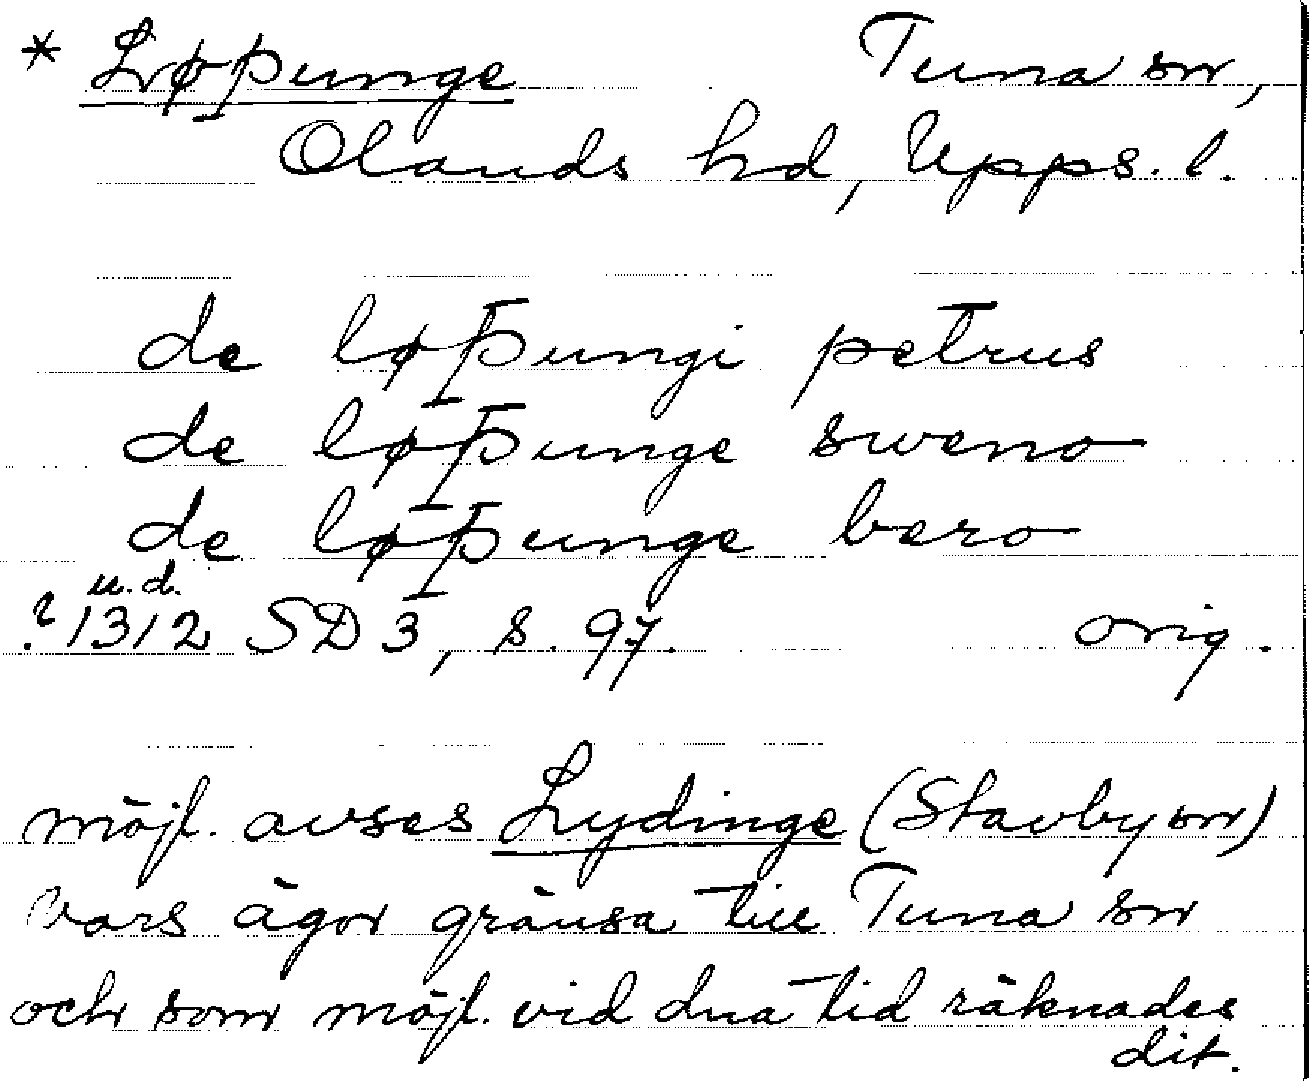 * Løþunge Tuna sn,
Olands hd, Upps. l.
de løþungi petrus
de løþunge sweno
de løþunge bero
u.d.
?1312 SD 3, s. 97. orig.
möjl. avses Lydinge (Stavby sn)
vars ägor gränsa till Tuna sn
och som möjl. vid dna tid räknades
dit.